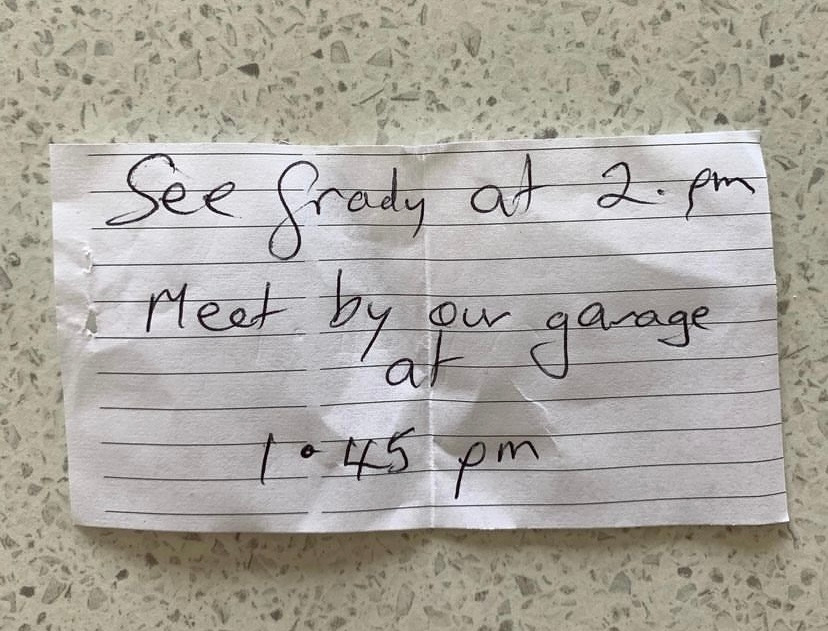 See Grady at 2. pm
Meet by our garage
at
1.45 pm